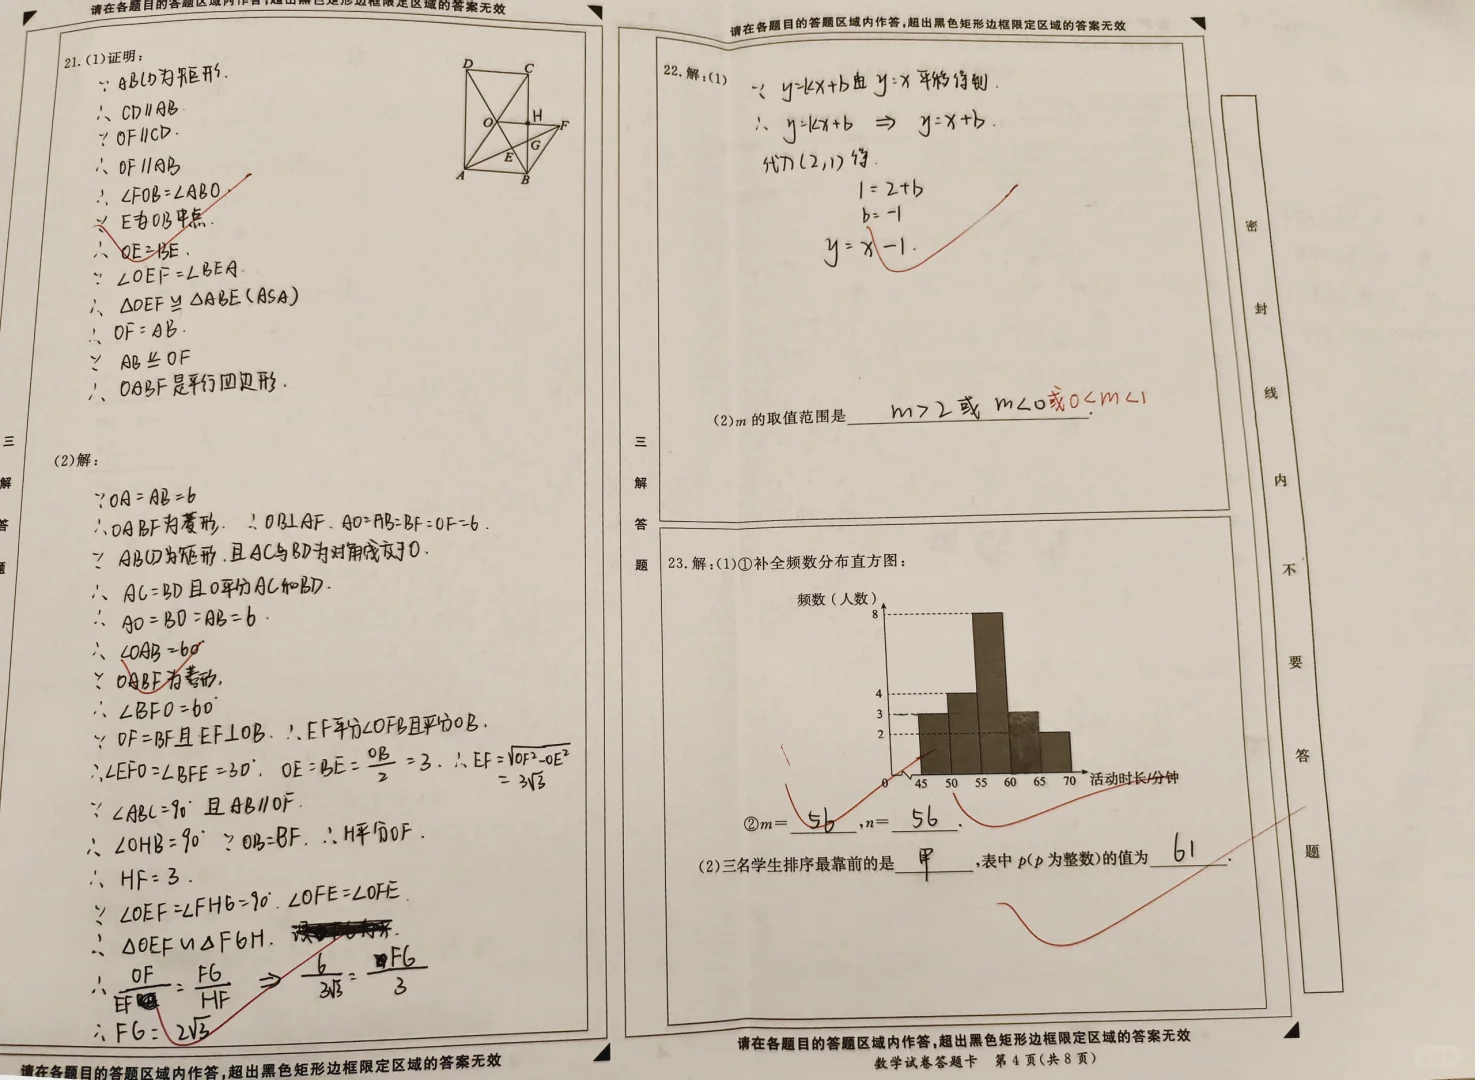 请在各题目的答题区域内作答,超出黑色矩形边框限定区域的答案无效
21.(1)证明:
∵ ABCD为矩形.
∴ CD∥AB.
∵ OF∥CD.
∴ OF∥AB
∴ ∠FOB=∠ABO.
∵ E为OB中点.
∴ OE=BE.
∵ ∠OEF=∠BEA.
∴ △OEF≌△ABE(ASA)
∴ OF=AB.
∵ AB
OF
∴ OABF是平行四边形.
D
C
O
H
F
G
E
A
B
三
解
答
题
(2)解:
∵OA=AB=6
∴OABF为菱形. ∴OB⊥AF. AO=AB=BF=OF=6.
∵ ABCD为矩形.且AC与BD为对角线交于O.
∴ AC=BD且O平分AC和BD.
∴ AO=BO=AB=6.
∴ ∠OAB=60°
∵ OABF为菱形.
∴ ∠BFO=60°
∵ OF=BF且EF⊥OB. ∴EF平分∠OFB且平分OB.
∴∠EFO=∠BFE=30°. OE=BE=OB/2=3. ∴EF=√OF²-OE²
=3√3
∵ ∠ABC=90° 且AB∥OF.
∴ ∠OHB=90° ∵OB=BF. ∴H平分OF.
∴ HF=3.
∵ ∠OEF=∠FHG=90°. ∠OFE=∠OFE.
∴ △OEF∽△FGH.
∴ OF/EF=FG/HF ⇒ 6/3√3=FG/3
∴ FG=2√3
请在各题目的答题区域内作答,超出黑色矩形边框限定区域的答案无效
请在各题目的答题区域内作答,超出黑色矩形边框限定区域的答案无效
22.解:(1)
∵ y=kx+b由y=x平移得到.
∴ y=kx+b ⇒ y=x+b.
代入(2,1)得.
1=2+b
b=-1
y=x-1.
(2)m的取值范围是 m>2或 m<0或0<m<1.
三
解
答
题
23.解:(1)①补全频数分布直方图:
频数(人数)
8
4
3
2
0 45 50 55 60 65 70 活动时长/分钟
②m=56,n=56.
(2)三名学生排序最靠前的是甲,表中p(p为整数)的值为61.
请在各题目的答题区域内作答,超出黑色矩形边框限定区域的答案无效
数学试卷答题卡 第4页(共8页)
密
封
线
内
不
要
答
题